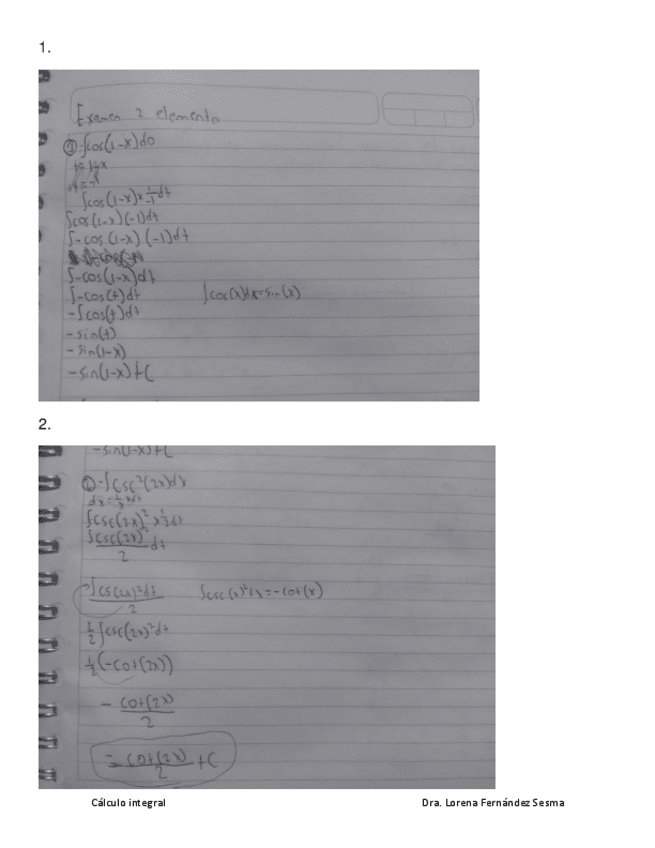 1.
Examen 2 elemento
① ∫cos(1-x)d0
∫cos(1-x)×1/-1 dt
∫cos(1-x)(-1)dt
∫-cos(1-x)(-1)dt
∫-cos(1-x)dt
∫-cos(t)dt ∫cos(x)dx=sin(x)
-∫cos(t)dt
-sin(t)
-sin(1-x)
-sin(1-x)+C
2.
-sin(1-x)+C
②-∫csc²(2x)dx
∫csc(2x)²×1/2dt
∫csc(2x)²/2 dt
∫csc(2x)²dt/2 ∫csc(x)²dx=-cot(x)
1/2∫csc(2x)²dt
1/2(-cot(2x))
- cot(2x)/2
= cot(2x)/2 +C
Cálculo integral Dra. Lorena Fernández Sesma